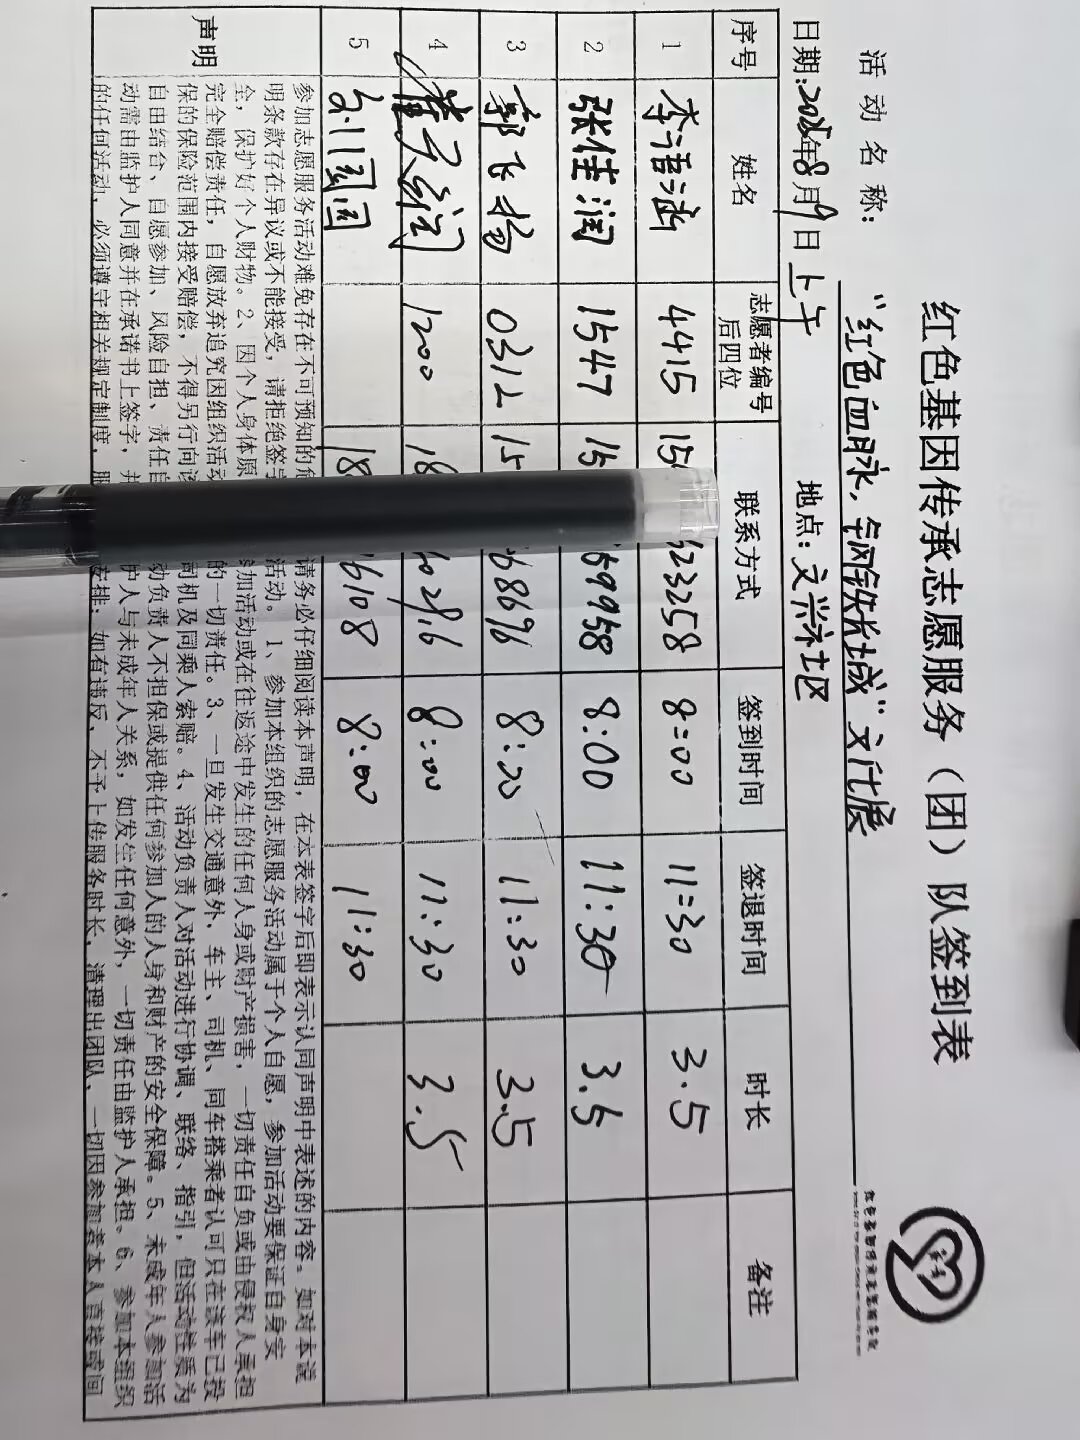 红色基因传承志愿服务（团）队签到表
活动名称：“红色血脉，钢铁长城”文化展
日期：2025年8月9日上午 地点：文兴社区
序号 姓名 志愿者编号后四位 联系方式 签到时间 签退时间 时长 备注
1 李语涵 4415 15 323258 8:00 11:30 3.5
2 张佳润 1547 15 69958 8:00 11:30 3.5
3 郭飞扬 0312 15 68696 8:20 11:30 3.5
4 1200 18 02816 8:00 11:30 3.5
5 18 6108 8:00 11:30
声明
参加志愿服务活动难免存在不可预知的危 请务必仔细阅读本声明，在本表签字后即表示认同声明中表述的内容。如对本说
明条款存在异议或不能接受，请拒绝签字 活动。1、参加本组织的志愿服务活动属于个人自愿，参加活动要保证自身安
全，保护好个人财物。2、因个人身体原 加活动或在往返途中发生的任何人身或财产损害，一切责任自负或由侵权人承担
完全赔偿责任，自愿放弃追究因组织活动 的一切责任。3、一旦发生交通意外，车主、司机、同车搭乘者认可只在该车已投
保的保险范围内接受赔偿，不得另行向该 司机及同乘人索赔。4、活动负责人对活动进行协调、联络、指引，但活动性质为
自由结合、自愿参加、风险自担、责任自 动负责人不担保或提供任何参加人的人身和财产的安全保障。5、未成年人参加活
动需由监护人同意并在承诺书上签字，并 护人与未成年人关系，如发生任何意外，一切责任由监护人承担。6、参加本组织
的任何活动，必须遵守相关规定制度，服 安排，如有违反，不予上传服务时长，清理出团队，一切因参加者本人直接或间